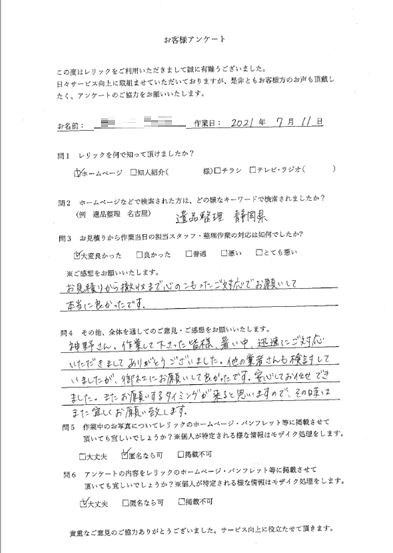 お客様アンケート
この度はレリックをご利用いただきまして誠に有難うございました。
日々サービス向上に取組ませていただいておりますが、是非ともお客様方のお声も頂戴し
たく、アンケートのご協力をお願いいたします。
お名前： 作業日： 2021 年 7 月 11 日
問1 レリックを何で知って頂けましたか？
☑ホームページ □知人紹介( 様)□チラシ □テレビ・ラジオ( )
問2 ホームページなどで検索された方は、どの様なキーワードで検索されましたか？
(例 遺品整理 名古屋) 遺品整理 静岡県
問3 お見積りから作業当日の担当スタッフ・整理作業の対応は如何でしたか?
☑大変良かった □良かった □普通 □悪い □とても悪い
※ご感想をお願いいたします。
お見積りから撤収まで心のこもったご対応でお願いして
本当に良かったです。
問4 その他、全体を通してのご意見・ご感想をお願いいたします。
神野さん、作業して下さった皆様、暑い中、迅速にご対応
いただきましてありがとうございました。他の業者さんも検討して
いましたが、御社にお願いして良かったです。安心してお任せでき
ました。またお願いするタイミングが来ると思いますので、その時は
また宜しくお願い致します。
問5 作業中のお写真についてレリックのホームページ・パンフレット等に掲載させて
頂いても宜しいでしょうか？※個人が特定される様な情報はモザイク処理をします。
□大丈夫 ☑匿名なら可 □掲載不可
問6 アンケートの内容をレリックのホームページ・パンフレット等に掲載させて
頂いても宜しいでしょうか？※個人が特定される様な情報はモザイク処理をします。
☑大丈夫 □匿名なら可 □掲載不可
貴重なご意見のご協力ありがとうございました。サービス向上に役立たせて頂きます。